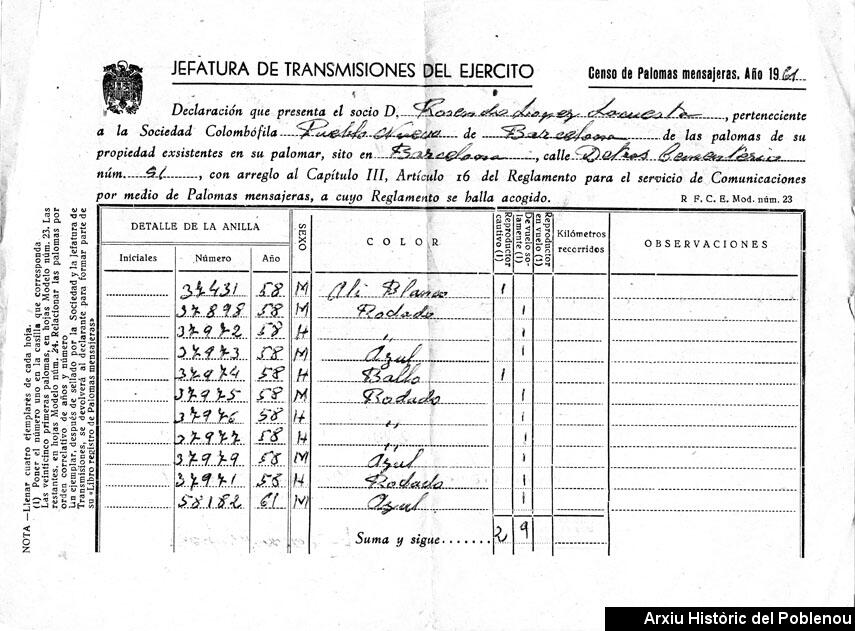 JEFATURA DE TRANSMISIONES DEL EJERCITO
Censo de Palomas mensajeras. Año 1961
Declaración que presenta el socio D. Rosendo Lopez Lacuesta, perteneciente
a la Sociedad Colombófila Pueblo Nuevo de Barcelona de las palomas de su
propiedad exsistentes en su palomar, sito en Barcelona, calle Detras Cementerio
núm. 91, con arreglo al Capítulo III, Artículo 16 del Reglamento para el servicio de Comunicaciones
por medio de Palomas mensajeras, a cuyo Reglamento se halla acogido.
R F. C. E. Mod. núm. 23
DETALLE DE LA ANILLA SEXO COLOR Reproductor cautivo (1) De vuelo solamente (1) Reproductor en vuelo (1) Kilómetros recorridos OBSERVACIONES
Iniciales Número Año
37431 58 M Ali Blanco 1
37898 58 M Rodado 1
37972 58 H ,, 1
37973 58 M Azul 1
37974 58 H Ballo 1
37975 58 M Rodado 1
37976 58 H ,, 1
37977 58 H ,, 1
37979 58 M Azul 1
37971 58 H Rodado 1
58182 61 M Azul 1
Suma y sigue....... 2 9
NOTA—Llenar cuatro ejemplares de cada hoja.
(1) Poner el número uno en la casilla que corresponda
Las veinticinco primeras palomas, en hojas Modelo núm. 23. Las
restantes, en hojas Modelo núm. 24. Relacionar las palomas por
orden correlativo de años y número
Un ejemplar, después de sellado por la Sociedad y la Jefatura de
Transmisiones, se devolverá al declarante para formar parte de
su «Libro registro de Palomas mensajeras»
Arxiu Històric del Poblenou